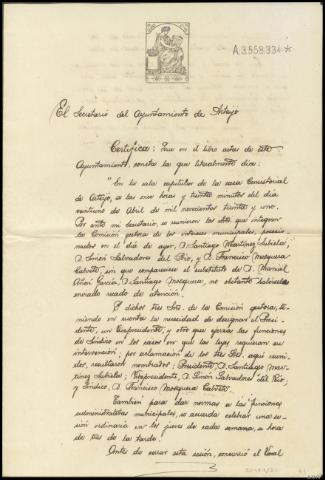 A.3.558.334 *
El Secretario del Ayuntamiento de Arteijo
Certifica: Que en el libro actas de este
Ayuntamiento, consta la que literalmente dice:
"En la sala capitular de la casa Consistorial
de Arteijo, a las once horas y treinta minutos del día
veintiuno de Abril de mil novecientos treinta y uno.
Por ante mi secretario, se reunieron los Sres que integran
la Comisión gestora de los intereses municipales, posesio-
nados en el día de ayer, D. Santiago Martínez Subiela;
D. Simón Salvadores del Río, y D. Francisco Mosquera
Cabeito, sin que compareciese el substituto de D. Manuel
García, D. Santiago Mosquera, no obstante habérsele
enviado recado de atención.
Y dichos tres Sres. de la Comisión gestora, te-
niendo en cuenta la necesidad de designar el Presi-
dente, un Vicepresidente, y otro que ejerza las funciones
de Síndico en los casos en que las leyes requieran su
intervención; por aclamación de los tres Sres. aquí reuni-
dos, resultaron nombrados: Presidente, D. Santiago Mar-
tínez Subiela; Vicepresidente, D. Simón Salvadores del Río,
y Síndico, D. Francisco Mosquera Cabeito.
También para dar normas a las funciones
administrativas municipales, se acuerda celebrar una se-
sión ordinaria en los jueves de cada semana, a hora
de tres de la tarde.
Antes de cerrar esta sesión, concurrió el Vocal